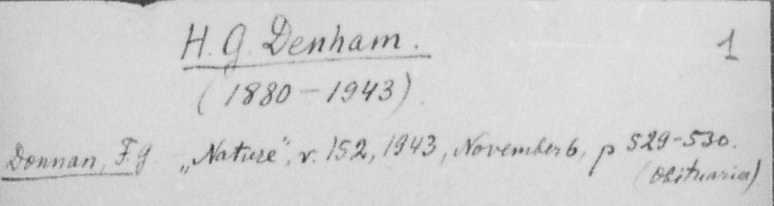 H. G. Denham.
1
(1880-1943)
Donnan, F. G. „Nature", v. 152, 1943, November 6, p 529-530.
(Obituaries)